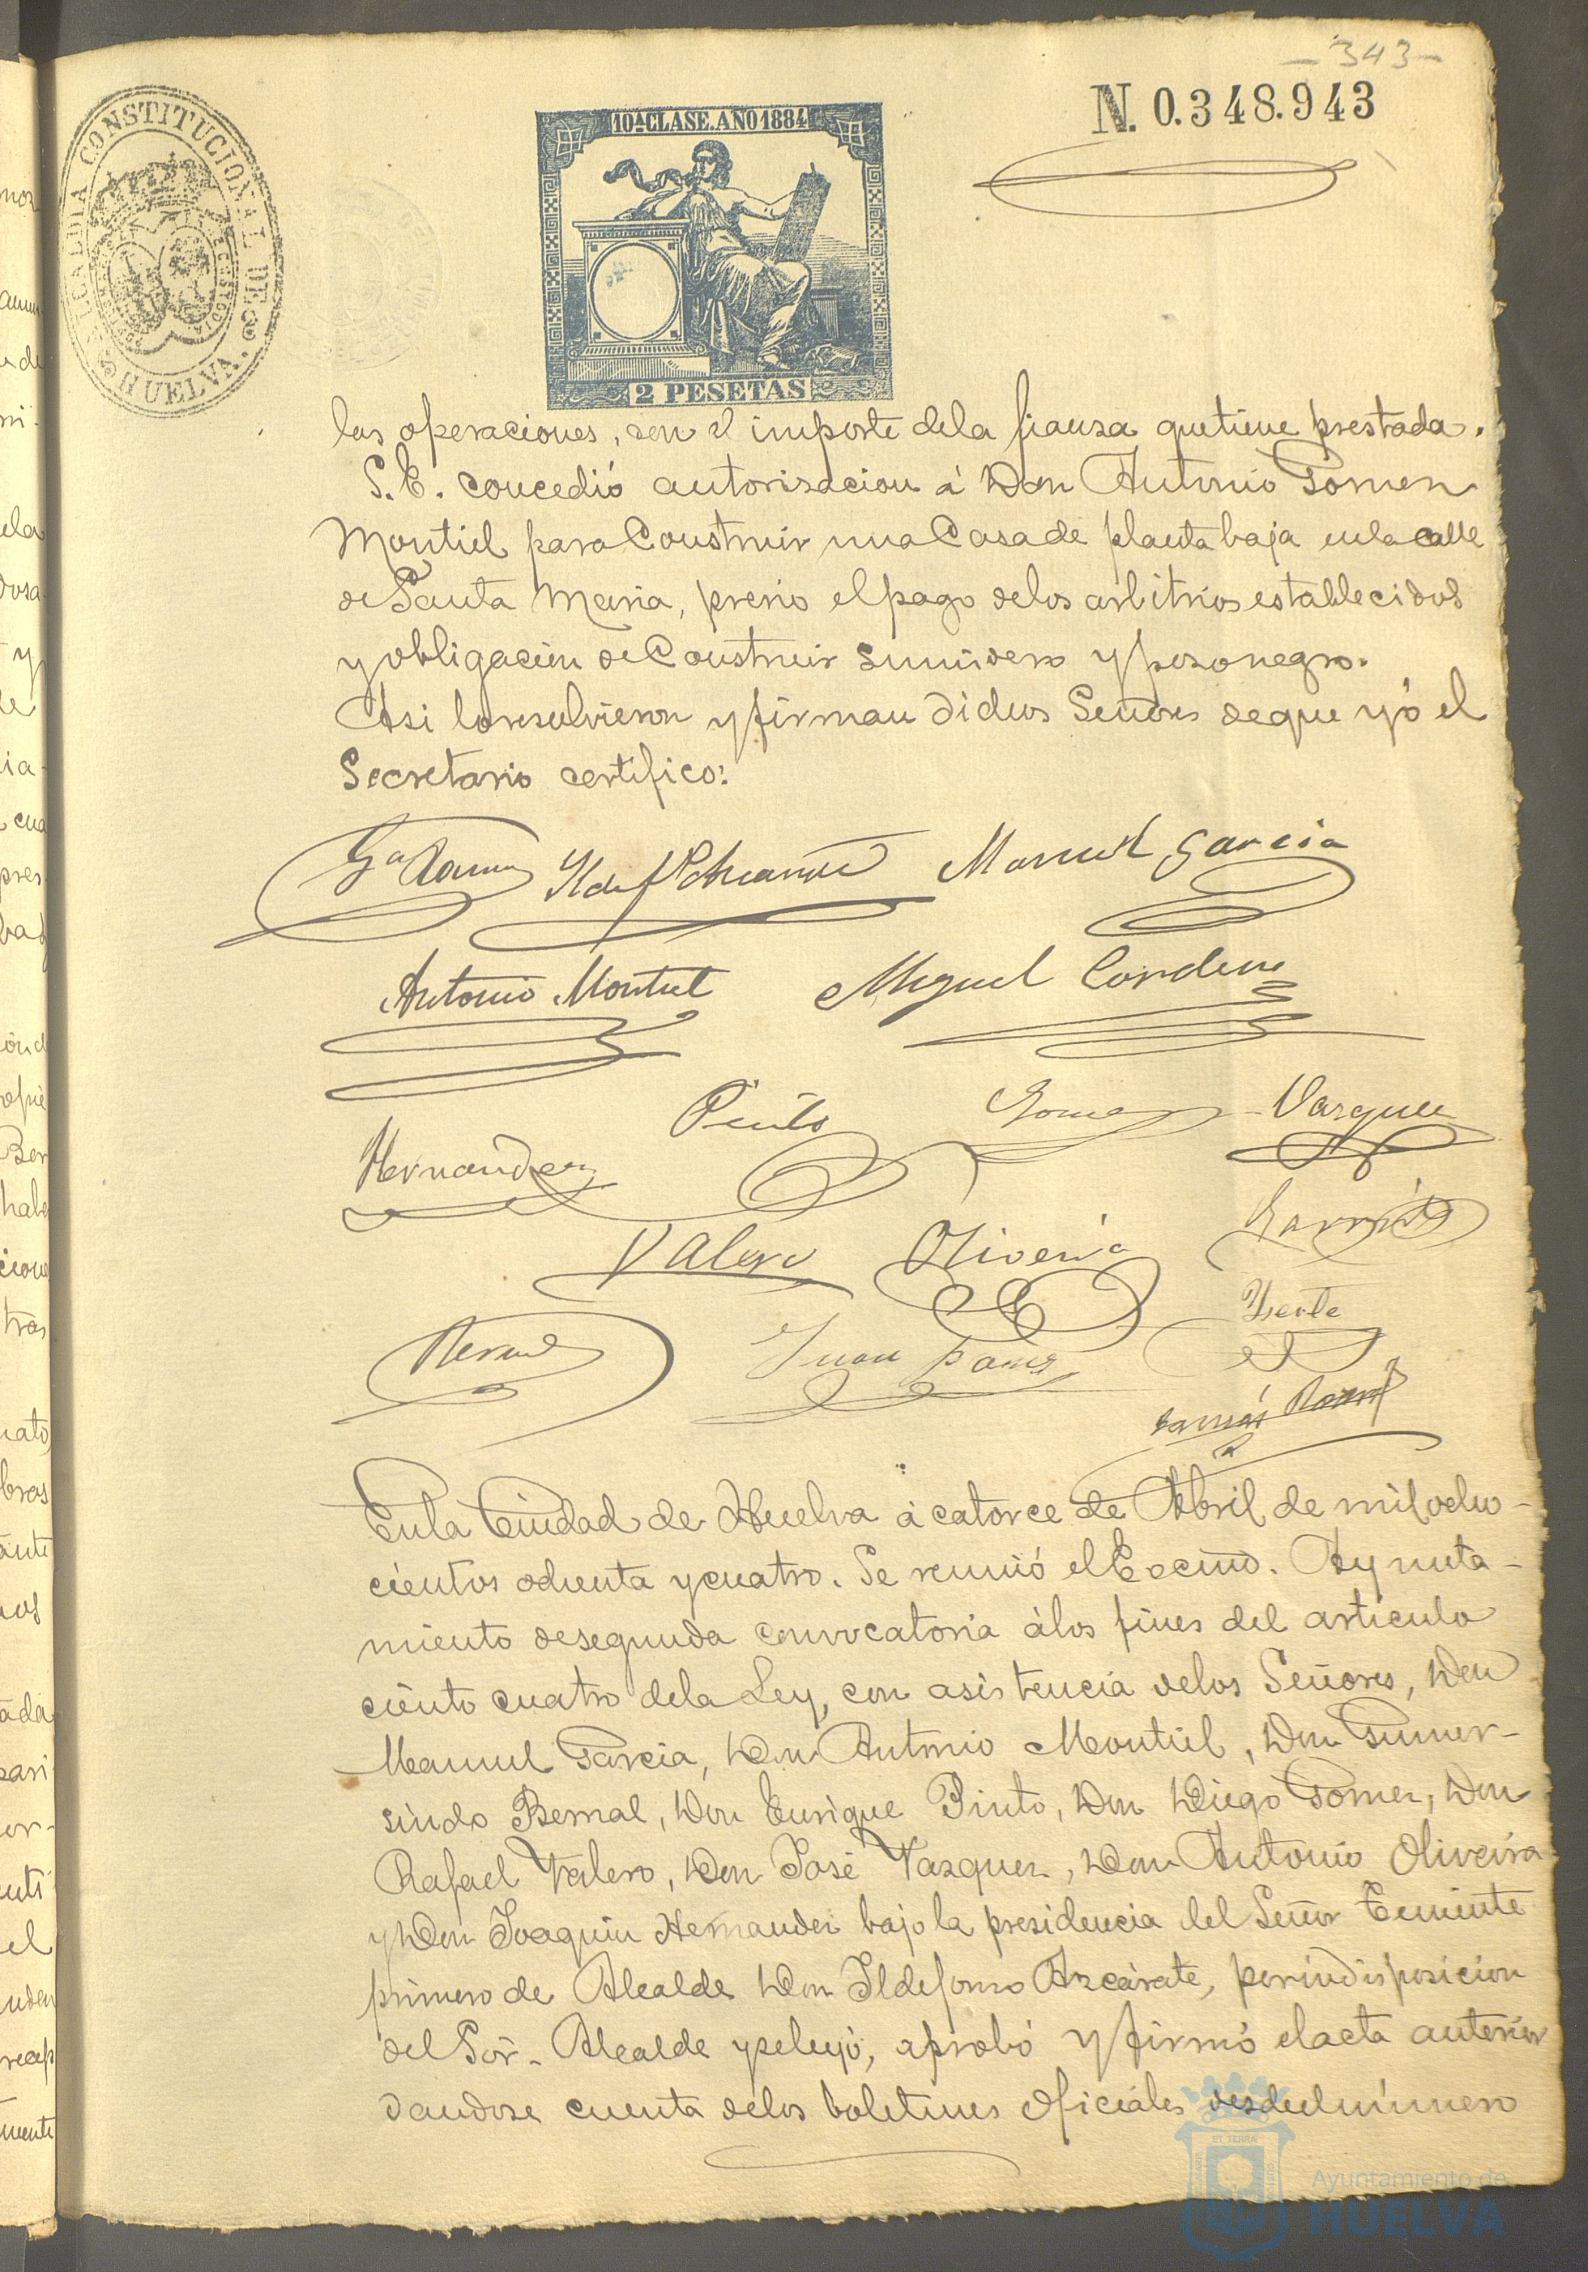 -343-
N. 0.348.943
ALCALDIA CONSTITUCIONAL DE HUELVA
10ª CLASE. AÑO 1884
2 PESETAS
las operaciones, con el importe dela fianza quetiene prestada.
S.E. concedió autorizacion á Don Antonio Gomez
Montiel para Construir una Casa de planta baja enla calle
de Santa Maria, previo el pago delos arbitrios establecidos
y obligacion de Construir sumidero y pozo negro.
Asi lo resolvieron y firman dichos Señores de que yó el
Secretario certifico:
Manuel Garcia
Antonio Montiel Miguel Cordero
Pinto Gomez Vazquez
Hernandez
Valero Oliveira Garrido
Bernal Juan
Enla Ciudad de Huelva á catorce de Abril de mil ocho-
cientos ochenta y cuatro. Se reunió el Excmo. Ayunta-
miento desegunda convocatoria álos fines del articulo
ciento cuatro dela Ley, con asistencia delos Señores, Don
Manuel Garcia, Don Antonio Montiel, Don Gumer-
sindo Bernal, Don Enrique Pinto, Don Diego Gomez, Don
Rafael Valero, Don José Vazquez, Don Antonio Oliveira
y Don Joaquin Hernandez bajo la presidencia del Señor Teniente
primero de Alcalde Don Ildefonso Azcárate, por indisposicion
del Sör. Alcalde y se leyó, aprobó y firmó el acta anterior
dandose cuenta delos boletines oficiales desde el número
Ayuntamiento de
HUELVA